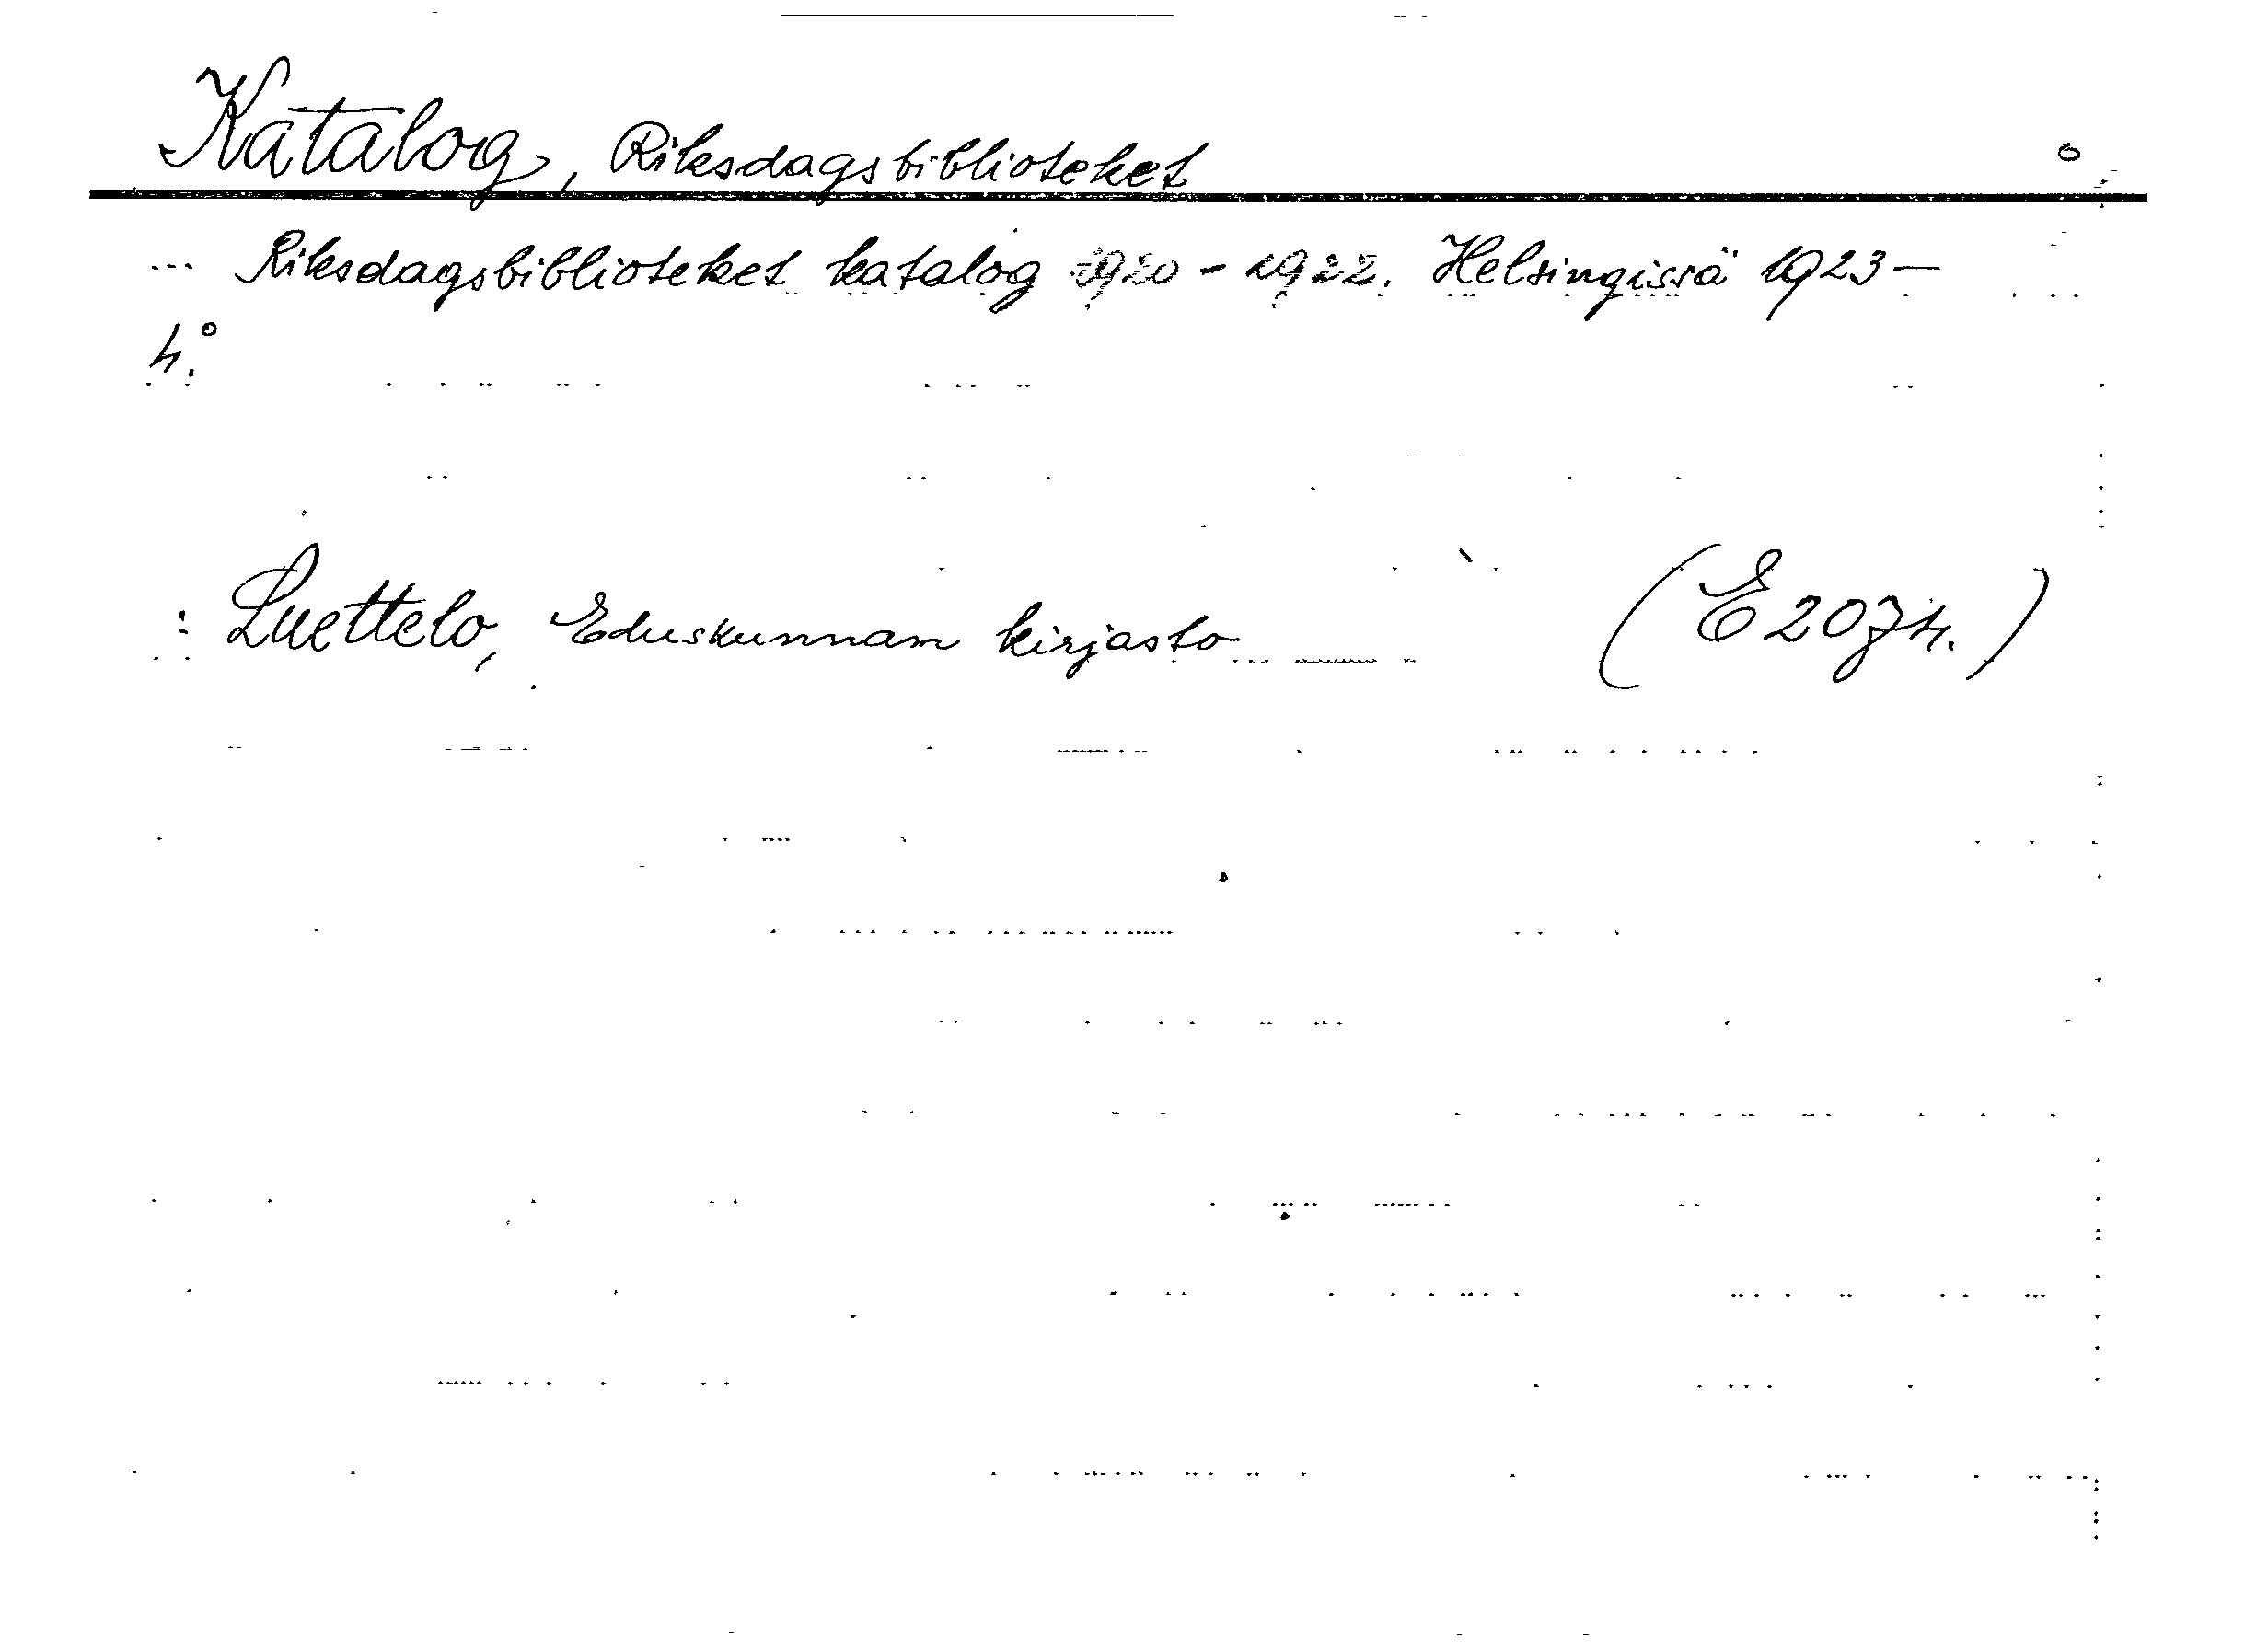 Katalog, Riksdagsbiblioteket
Riksdagsbiblioteket katalog 1920 - 1922. Helsingissä 1923 —
4.°
: Luettelo, Eduskunnan kirjasto (E 2074.)